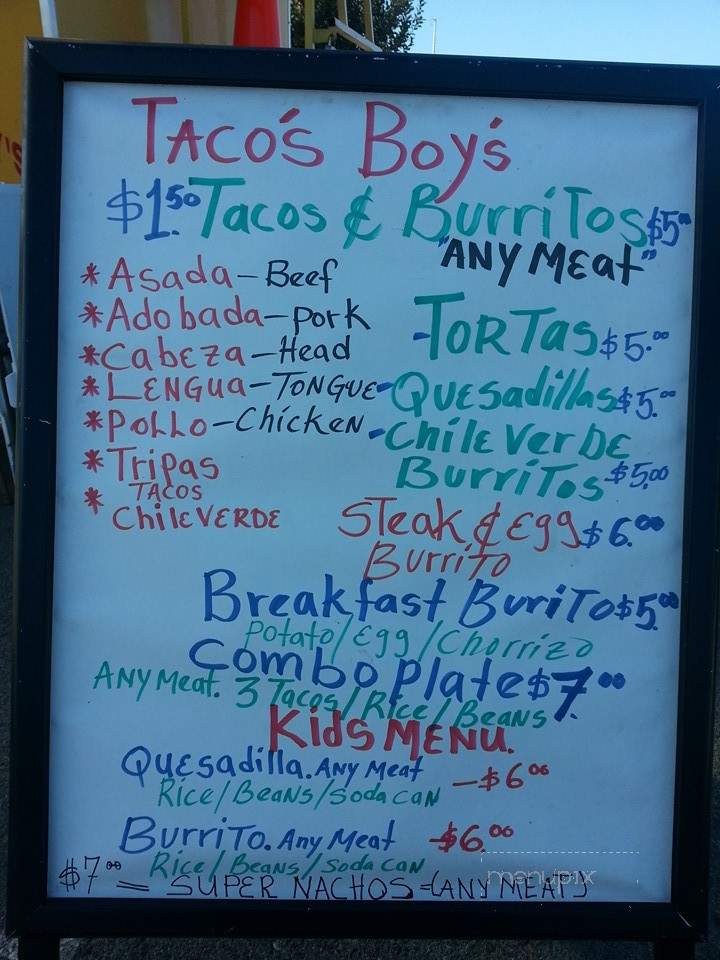 TACO'S BOY'S
$1.50 Tacos & BurriTos $5.00
"ANY MEat"
*Asada-Beef
*Adobada-pork
*Cabeza-Head
*LENGUa-TONGUE
*Pollo-Chicken
*Tripas
* TACOS
ChilEVERDE
-TORTas $5.00
-Quesadillas $5.00
-ChilE VerDE
BurriTos $5.00
STeak & Egg $6.00
BurriTo
Breakfast BuriTo $5.00
Potato/Egg/Chorrizo
Combo Plate $7.00
ANY Meat. 3 Tacos/Rice/Beans
Kids MENU.
Quesadilla. Any Meat -$6.00
Rice/Beans/Soda can
BurriTo. Any Meat -$6.00
Rice/Beans/Soda can
$7.00 = SUPER NACHOS-(ANY MEAT)
menupix